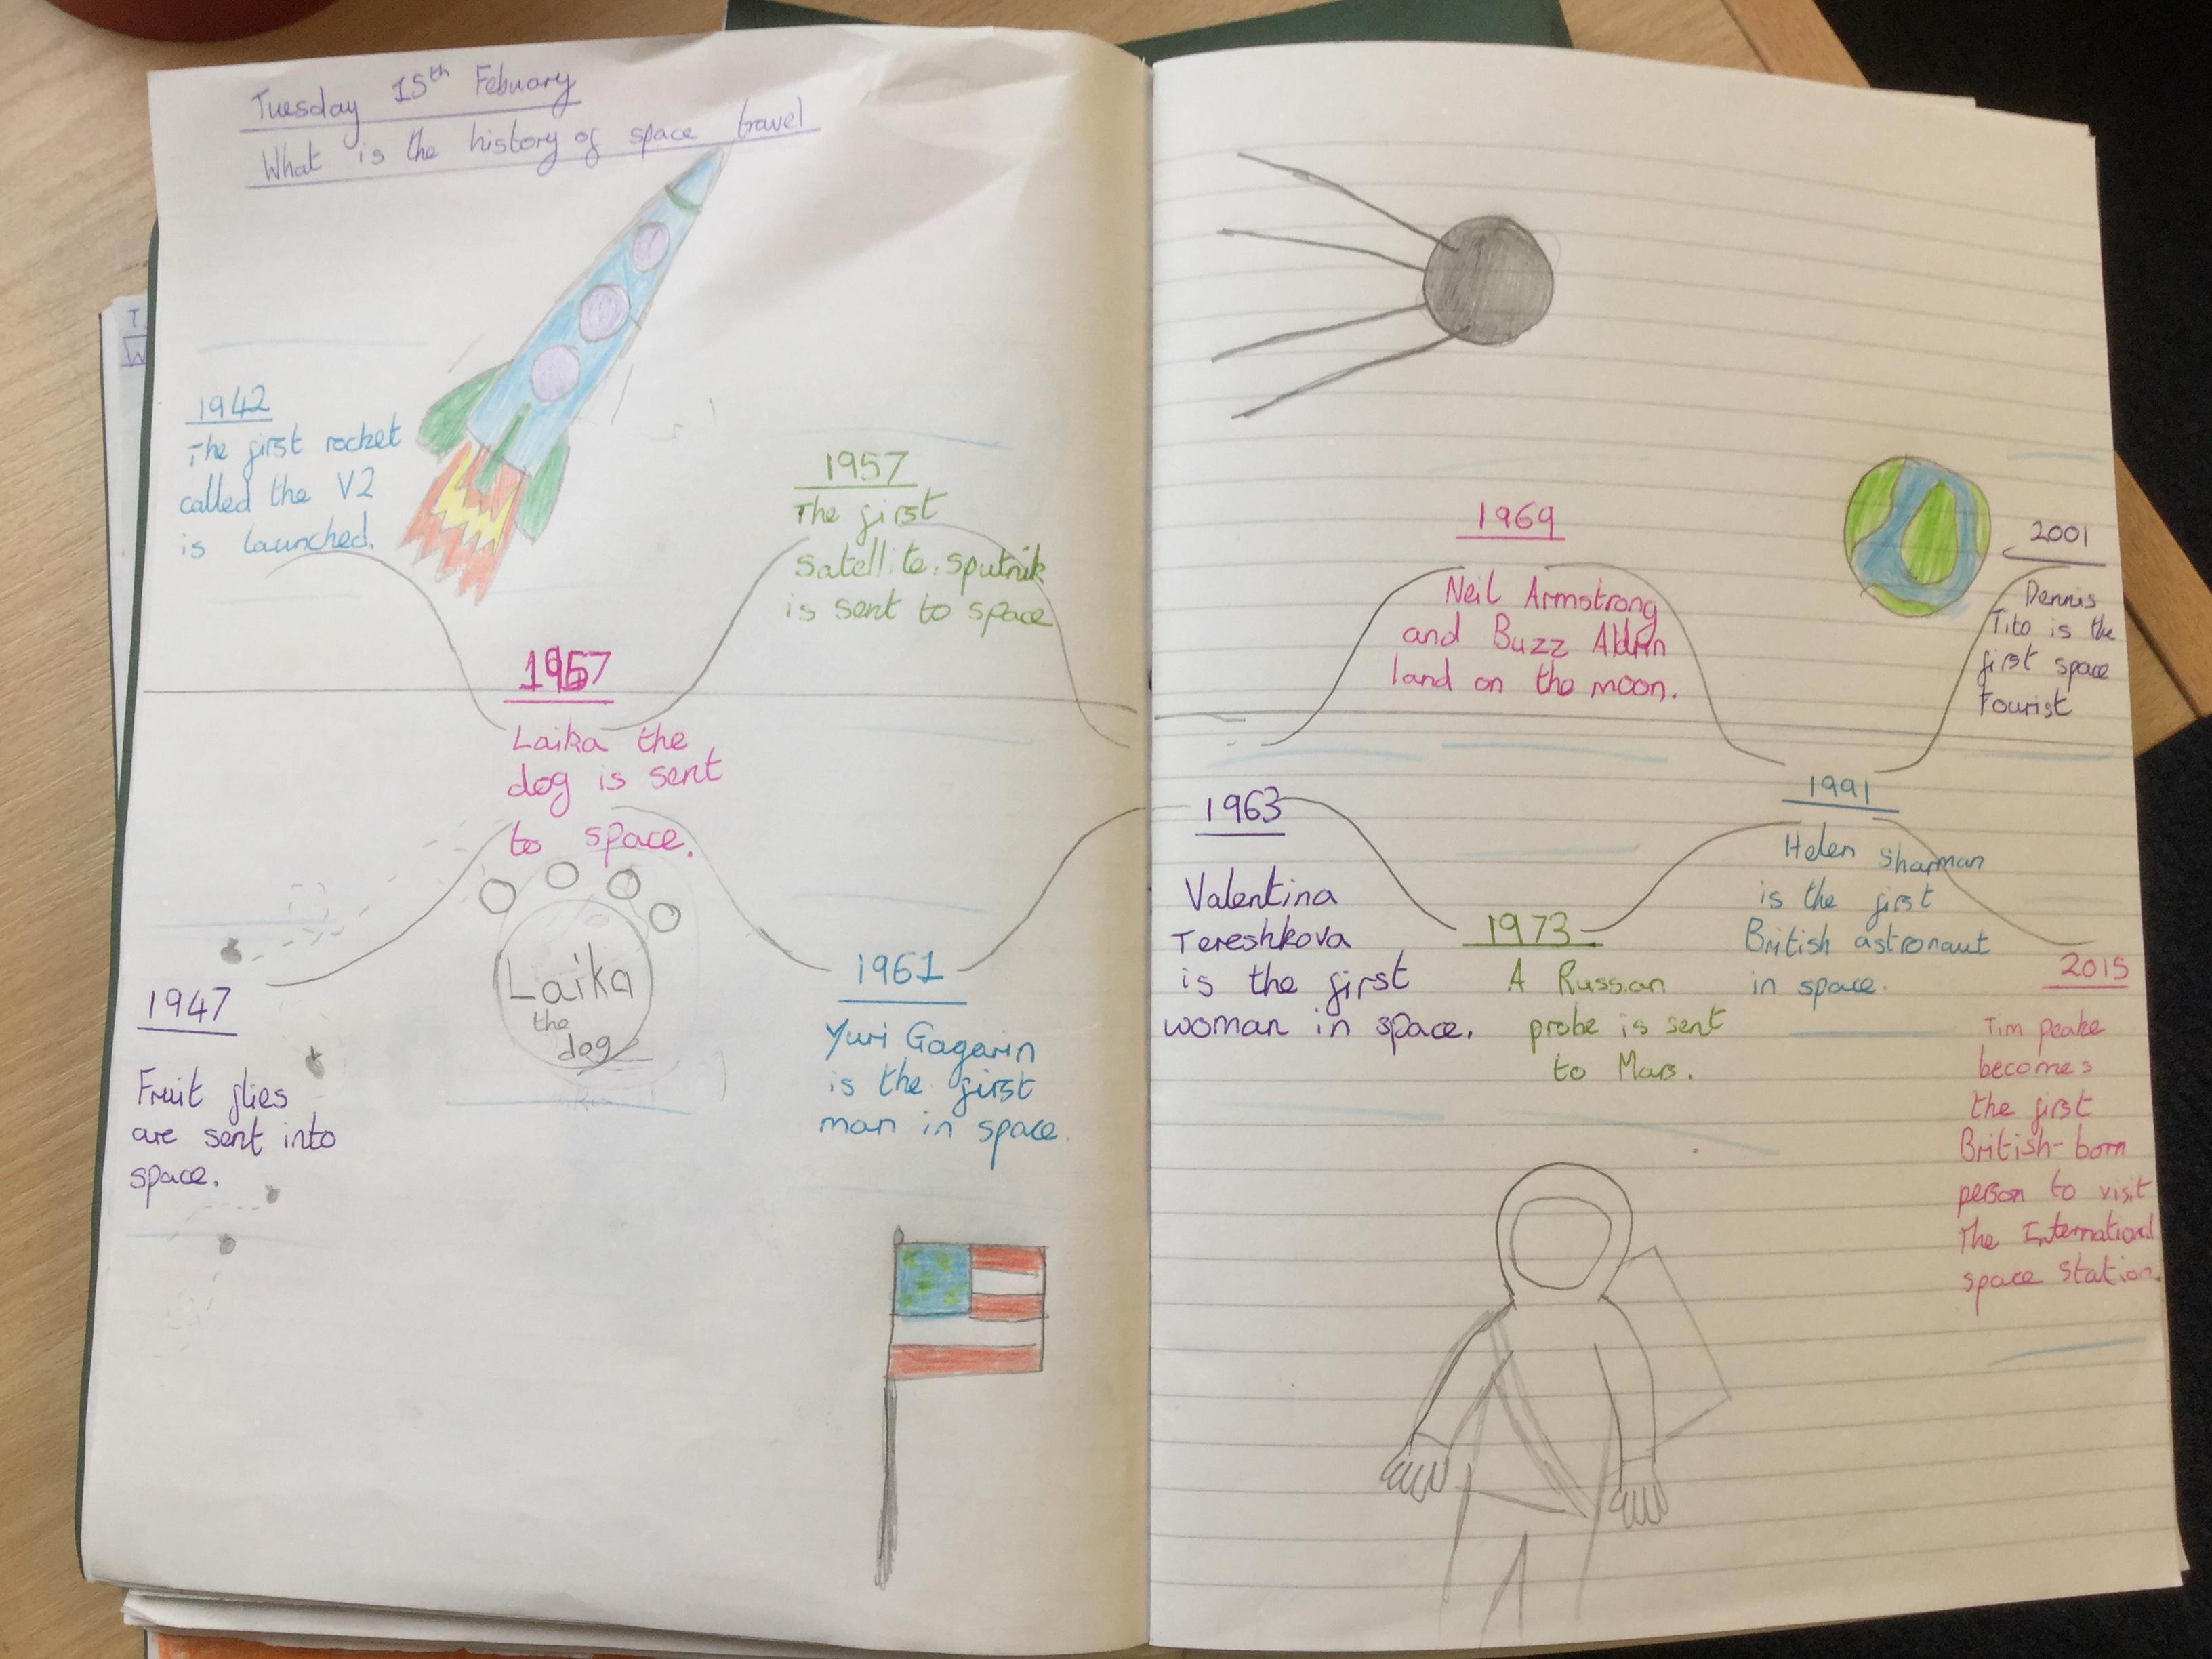 Tuesday 15th Febuary
What is the history of space travel
1942
The first rocket
called the V2
is launched.
1947
Fruit flies
are sent into
space.
1957
Laika the
dog is sent
to space.
Laika
the
dog
1957
The first
Satellite, sputnik
is sent to space
1961
Yuri Gagarin
is the first
man in space.
1963
Valentina
Tereshkova
is the first
woman in space.
1969
Neil Armstrong
and Buzz Aldrin
land on the moon.
1973
A Russian
probe is sent
to Mars.
1991
Helen Sharman
is the first
British astronaut
in space.
2001
Dennis
Tito is the
first space
Tourist
2015
Tim Peake
becomes
the first
British-born
person to visit
The International
space station.